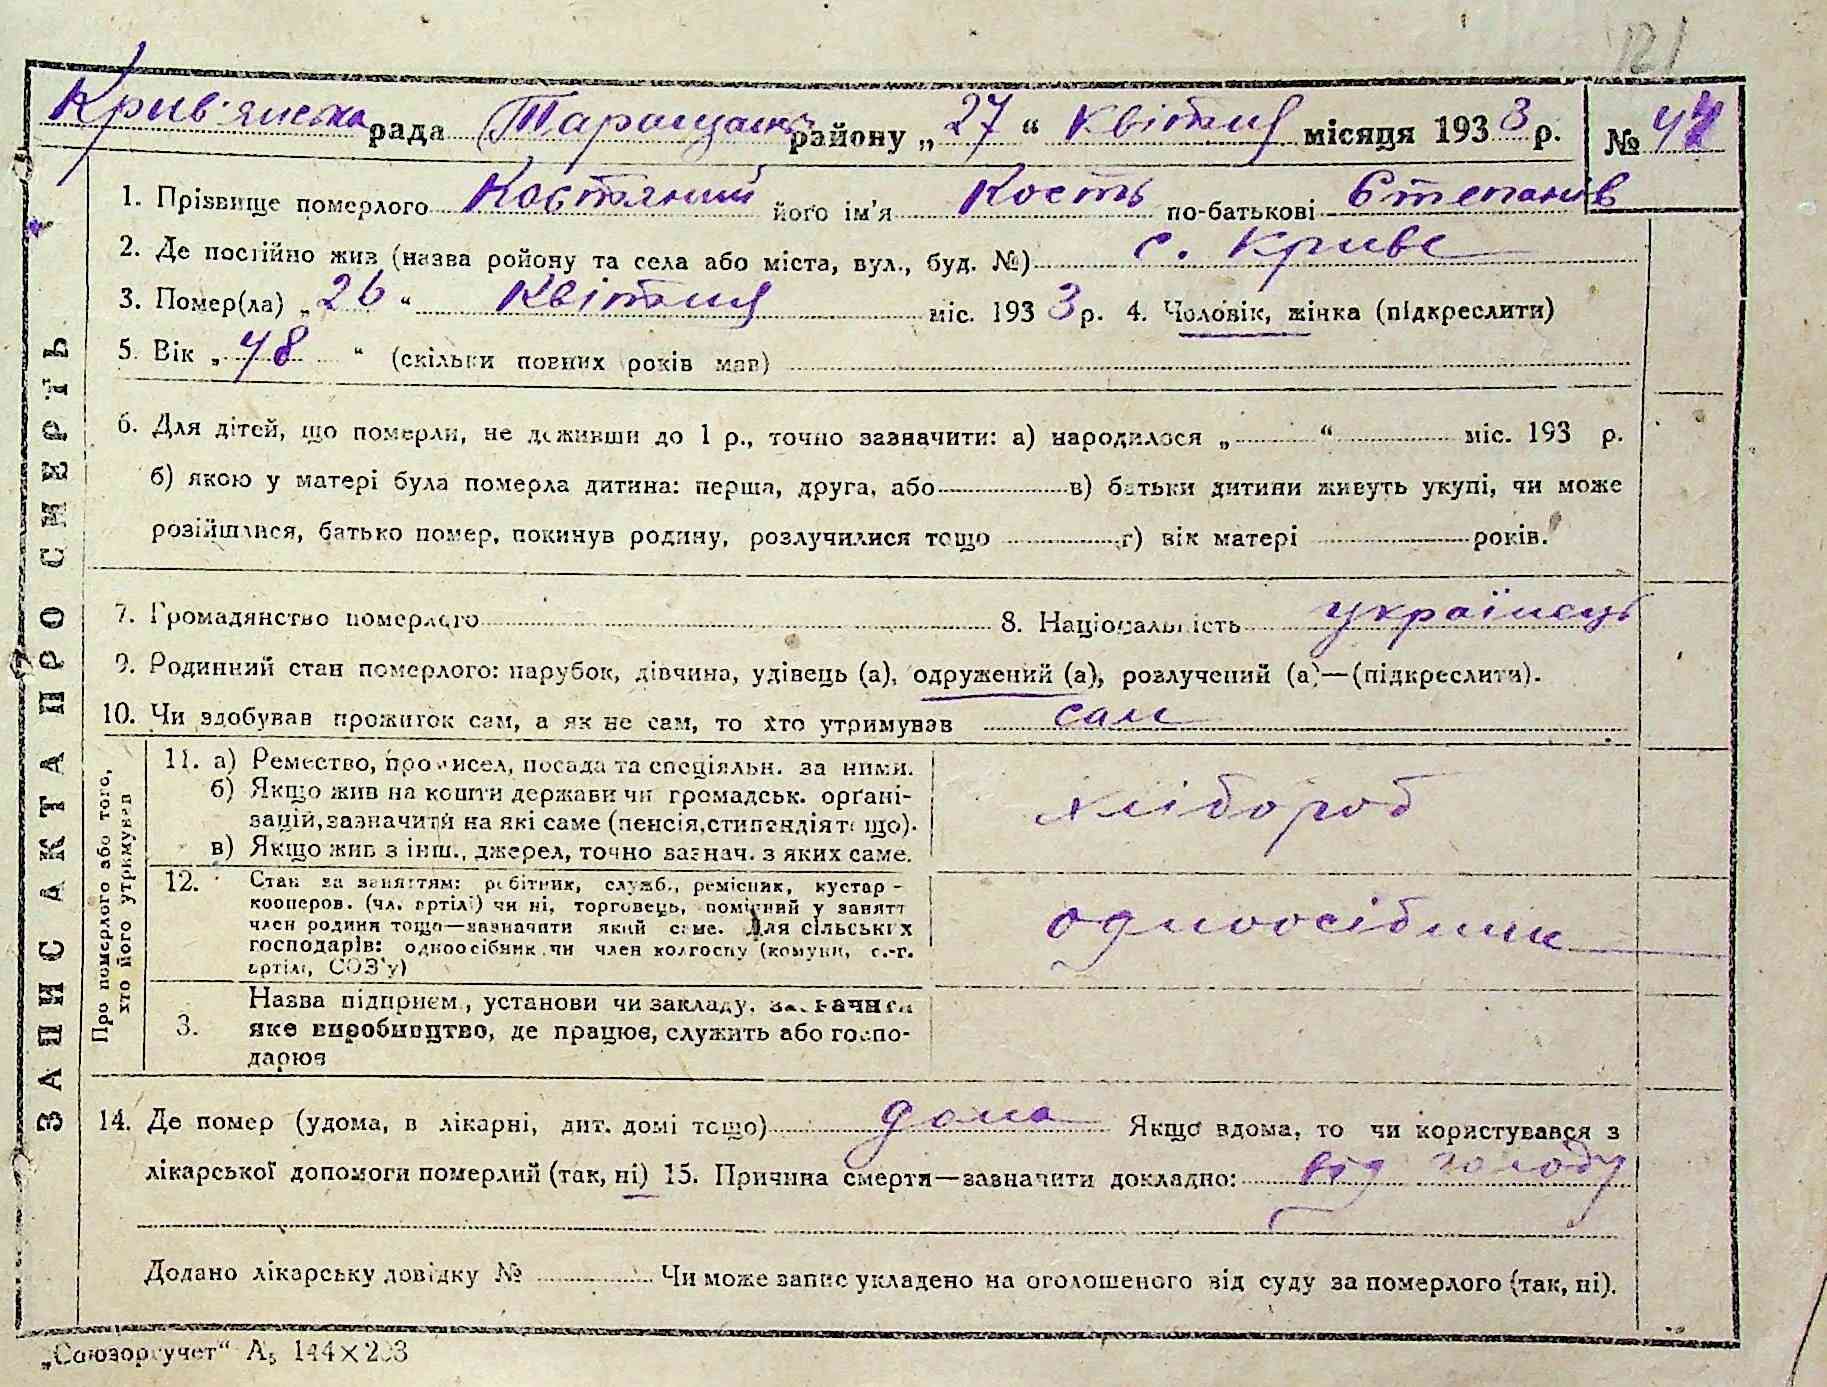 121
Крив'янська рада Таращанск району „27“ Квітня місяця 1933 р. № 47
1. Прізвище померлого Костяний його ім'я Кость по-батькові Степанів
2. Де постійно жив (назва ройону та села або міста, вул., буд. №) с. Криве
3. Помер(ла) „26“ Квітня міс. 1933 р. 4. Чоловік, жінка (підкреслити)
5. Вік „48“ (скільки повних років мав)
6. Для дітей, що померли, не доживши до 1 р., точно зазначити: а) народилося „ “ міс. 193 р.
б) якою у матері була померла дитина: перша, друга, або в) батьки дитини живуть укупі, чи може
розійшлися, батько помер, покинув родину, розлучилися тощо г) вік матері років.
7. Громадянство померлого 8. Національність українець
9. Родинний стан померлого: парубок, дівчина, удівець (а), одружений (а), розлучений (а)—(підкреслити).
10. Чи здобував прожиток сам, а як не сам, то хто утримував сам
11. а) Ремество, промисел, посада та спеціяльн. за ними.
б) Якщо жив на кошти держави чи громадськ. орґані-
зацій, зазначити на які саме (пенсія, стипендія тощо).
в) Якщо жив з інш., джерел, точно зазнач. з яких саме.
хлібороб
12. Стан за заняттям: робітник, служб., ремісник, кустар -
кооперов. (чл. артілі) чи ні, торговець, помічний у занятт
член родини тощо—зазначити який саме. Для сільських
господарів: одноосібник чи член колгоспу (комуни, с.-г.
артілі, СОЗ'у)
одноосібник
3. Назва підприєм., установи чи закладу, зазначити
яке виробництво, де працює, служить або госпо-
дарює
14. Де помер (удома, в лікарні, дит. домі тощо) дома Якщо вдома, то чи користувався з
лікарської допомоги померлий (так, ні) 15. Причина смерти—зазначити докладно: від голоду
Додано лікарську довідку № Чи може запис укладено на оголошеного від суду за померлого (так, ні).
ЗАПИС АКТА ПРО СМЕРТЬ
Про померлого або того,
хто його утримував
„Союзоргучет“ А₅ 144×203